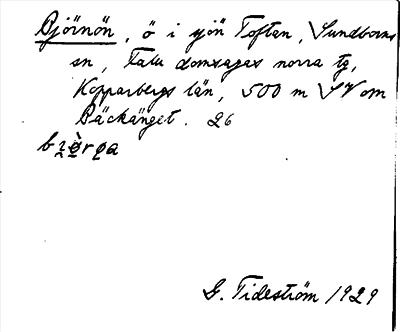 Björnön, ö i sjön Toftan, Sundborns
sn, Falu domsagas norra tg,
Kopparbergs län, 500 m SV om
Bäckänget. 26
G. Tideström 1929